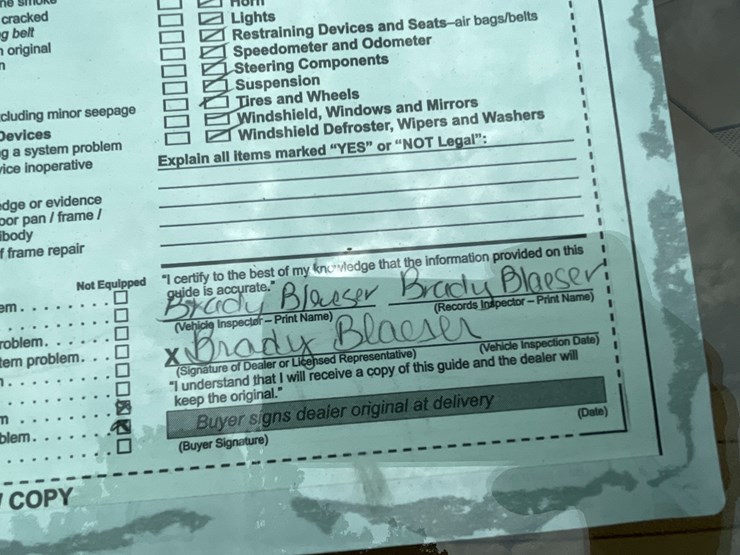 cracked
g belt
original
n
cluding minor seepage
Devices
g a system problem
vice inoperative
edge or evidence
oor pan / frame /
body
f frame repair
Horn
Lights
Restraining Devices and Seats–air bags/belts
Speedometer and Odometer
Steering Components
Suspension
Tires and Wheels
Windshield, Windows and Mirrors
Windshield Defroster, Wipers and Washers
Explain all items marked “YES” or “NOT Legal”:
Not Equipped
em . . . . . . . .
roblem. . . . . .
tem problem. . .
m . . . . . . . .
blem. . . . . . .
"I certify to the best of my knowledge that the information provided on this
guide is accurate."
Brady Blaeser Brady Blaeser
(Vehicle Inspector – Print Name) (Records Inspector – Print Name)
X Brady Blaeser
(Signature of Dealer or Licensed Representative) (Vehicle Inspection Date)
"I understand that I will receive a copy of this guide and the dealer will
keep the original."
Buyer signs dealer original at delivery
(Buyer Signature) (Date)
COPY